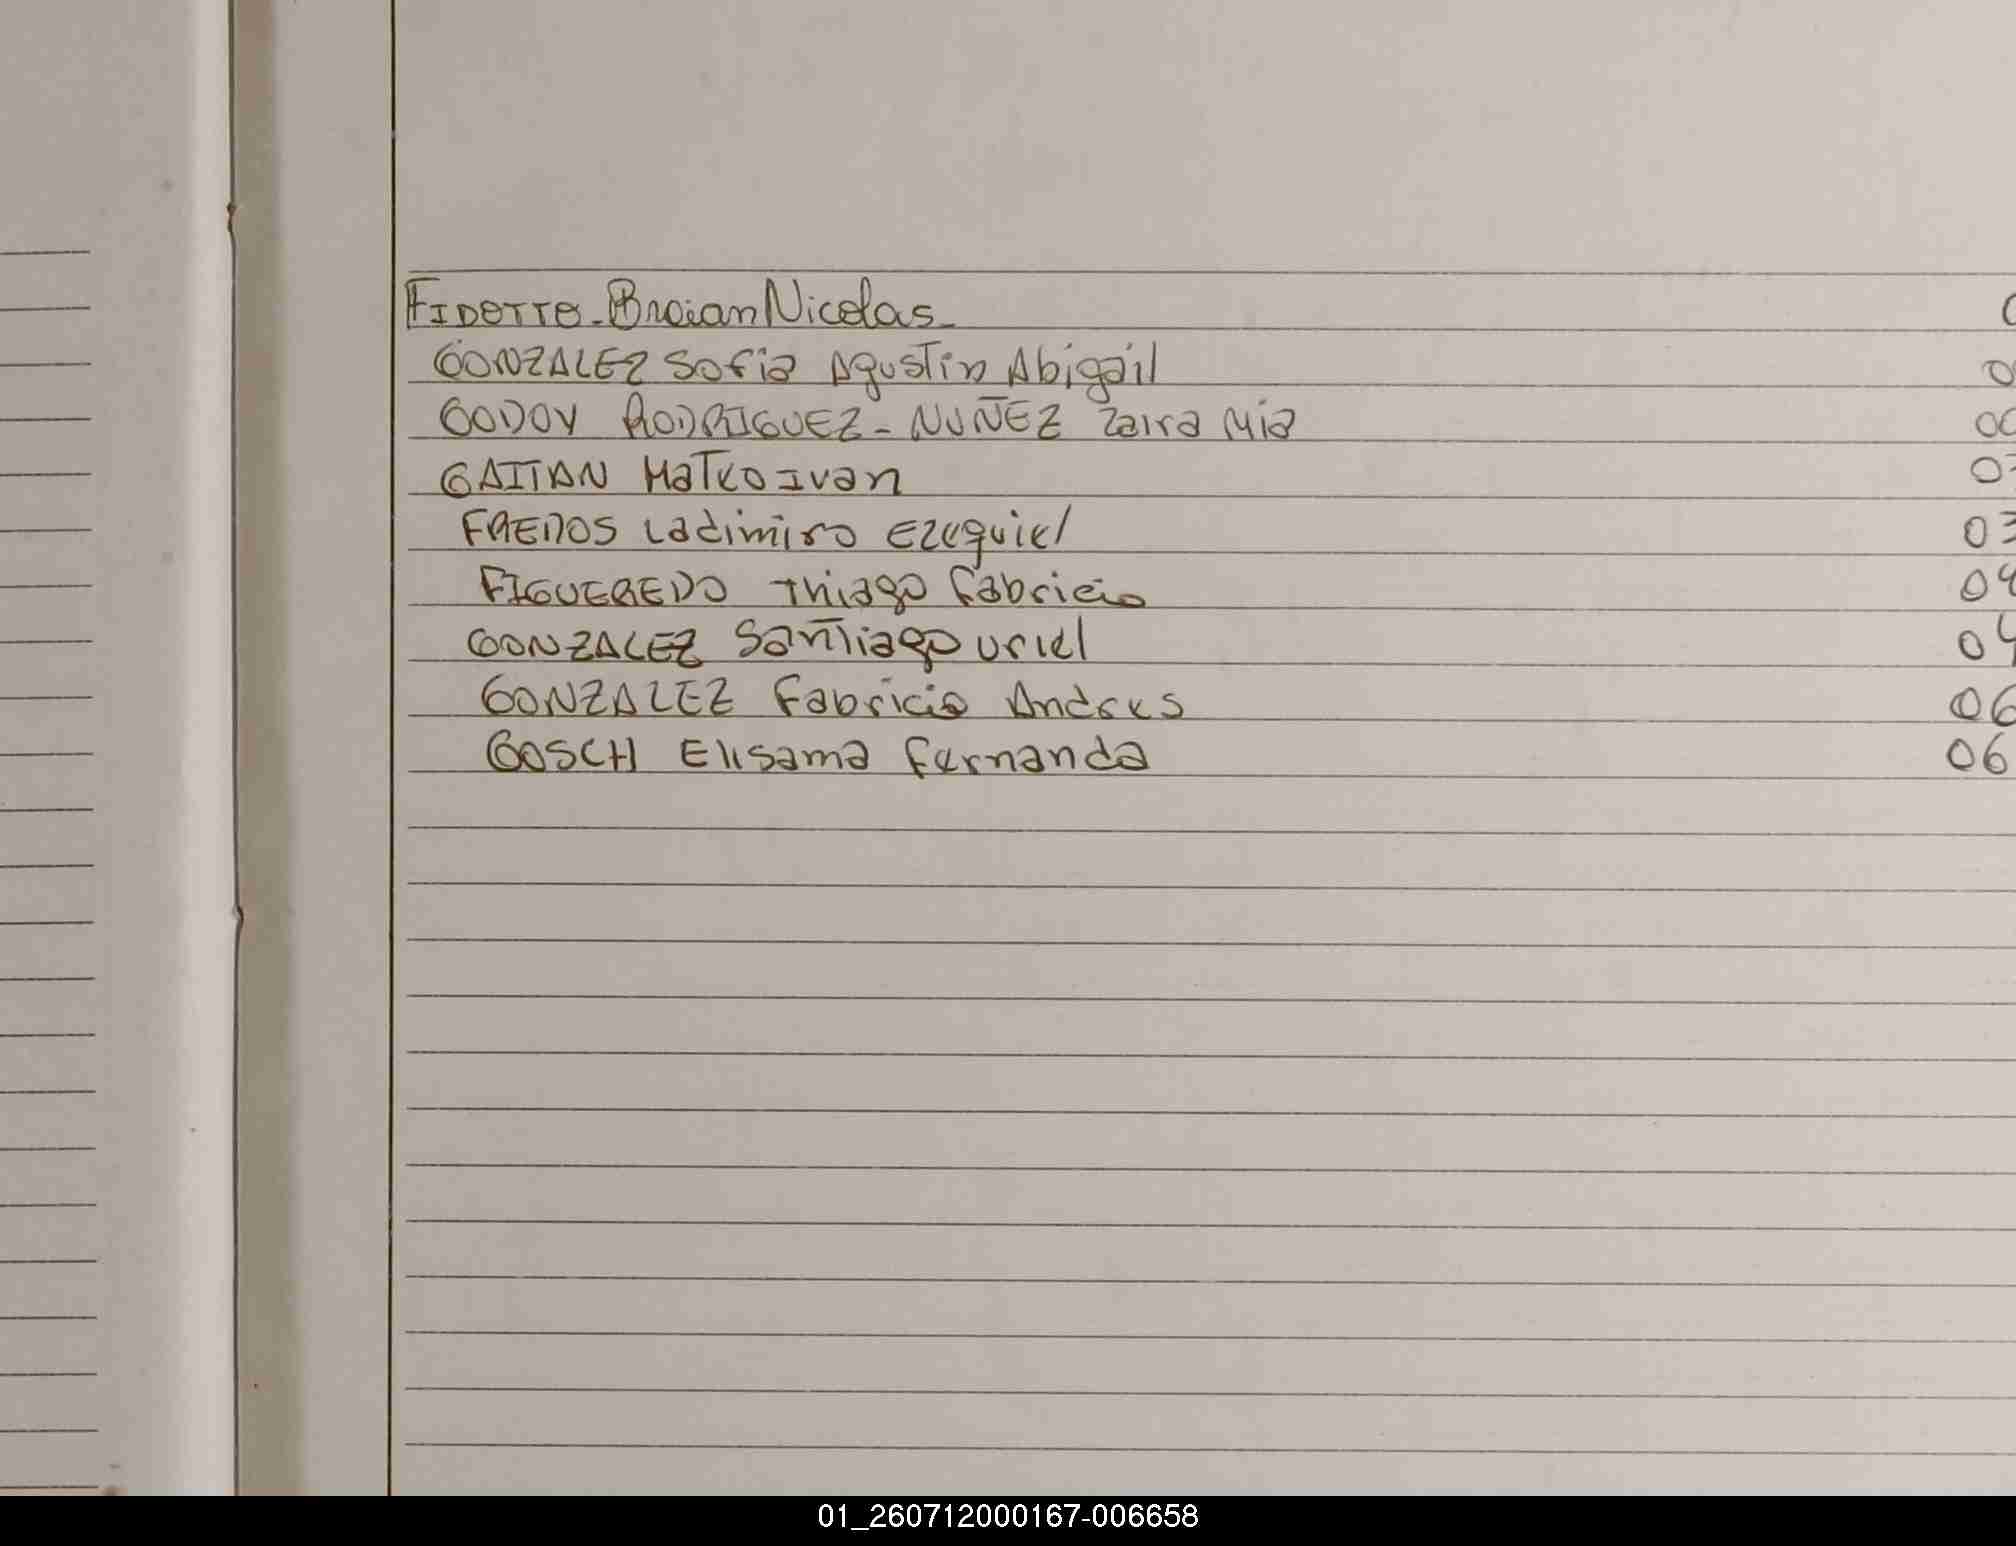 FIDOTTO - Braian Nicolas -
GONZALEZ Sofia Agustin Abigail 0
GODOY RODRIGUEZ - NUÑEZ Zaira Mia 00
GAITAN Mateo Ivan 03
FREDOS Ladimiro Ezequiel 03
FIGUEREDO Thiago Fabricio 04
GONZALEZ Santiago Uriel 04
GONZALEZ Fabricio Andres 06
GOSCH Elisama Fernanda 06
01_260712000167-006658